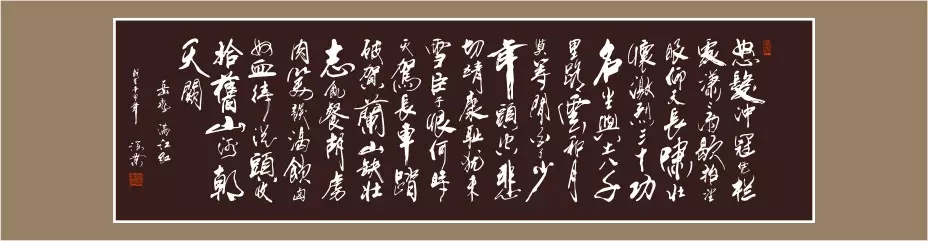 怒髮冲冠凭栏
處潇々雨歇抬望
眼仰天長嘯壯
懷激烈三十功
名尘與土八千
里路雲和月
莫等閒白了少
年頭空悲
切靖康耻犹未
雪臣子恨何時
灭駕長車踏
破賀蘭山缺壯
志飢餐胡虏
肉笑談渴飲匈
奴血待從頭收
拾舊山河朝
天闕
岳飛 满江红